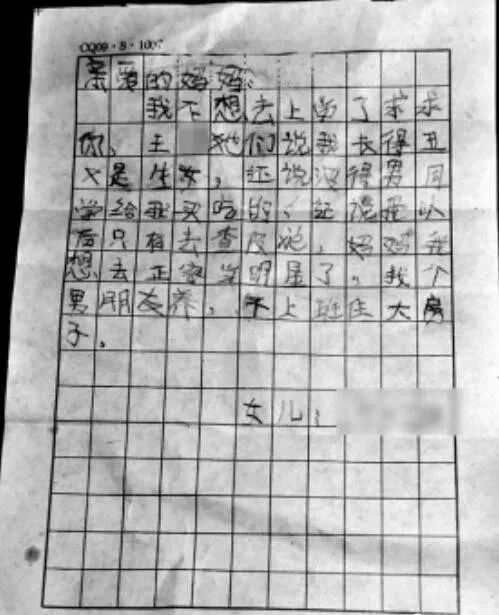 CQ09·8·1007
亲爱的妈妈:
我不想去上学了求求
你，王 她们说我长得丑
又是生女，还说没得男同
学给我买吃的、还说我以
后只有去查皮鞋，妈妈我
想去正容当明星了。找个
男朋友养，不上班住大房
子。
女儿: